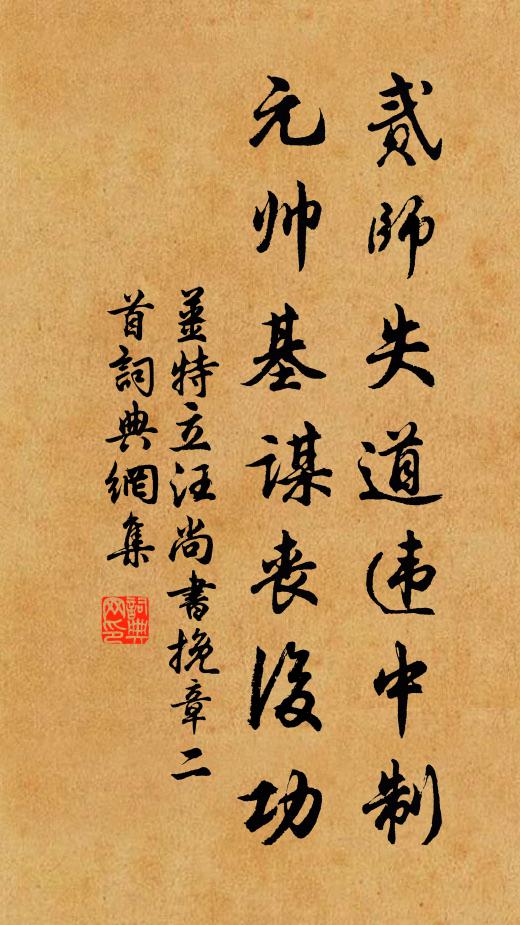 貳師失道违中制
元帅基谋丧後功
薑特立汪尚書挽章二
首詞典網集
詞典
网印